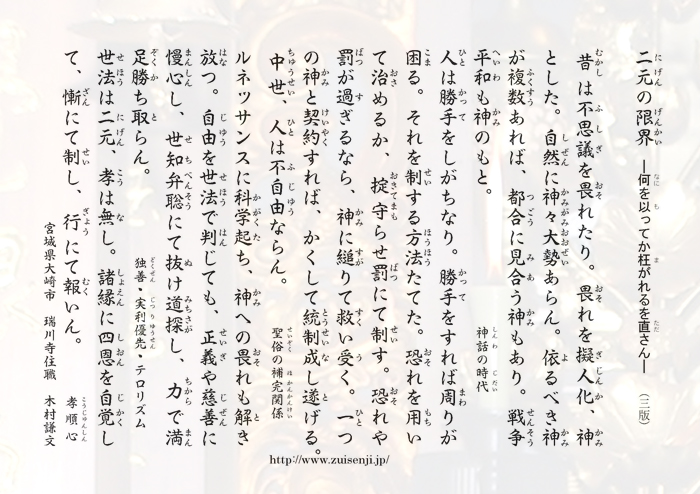 二元の限界 ―何を以ってか枉がれるを直さん― (三版)
昔は不思議を畏れたり。畏れを擬人化、神
とした。自然に神々大勢あらん。依るべき神
が複数あれば、都合に見合う神もあり。戦争
平和も神のもと。 神話の時代
人は勝手をしがちなり。勝手をすれば周りが
困る。それを制する方法たてた。恐れを用い
て治めるか、掟守らせ罰にて制す。恐れや
罰が過ぎるなら、神に縋りて救い受く。一つ
の神と契約すれば、かくして統制成し遂げる。
中世、人は不自由ならん。 聖俗の補完関係
ルネッサンスに科学起ち、神への畏れも解き
放つ。自由を世法で判じても、正義や慈善に
慢心し、世知弁聡にて抜け道探し、力で満
足勝ち取らん。 独善・実利優先・テロリズム
世法は二元、孝は無し。諸縁に四恩を自覚し
て、慚にて制し、行にて報いん。 孝順心
宮城県大崎市 瑞川寺住職 木村謙文
http://www.zuisenji.jp/